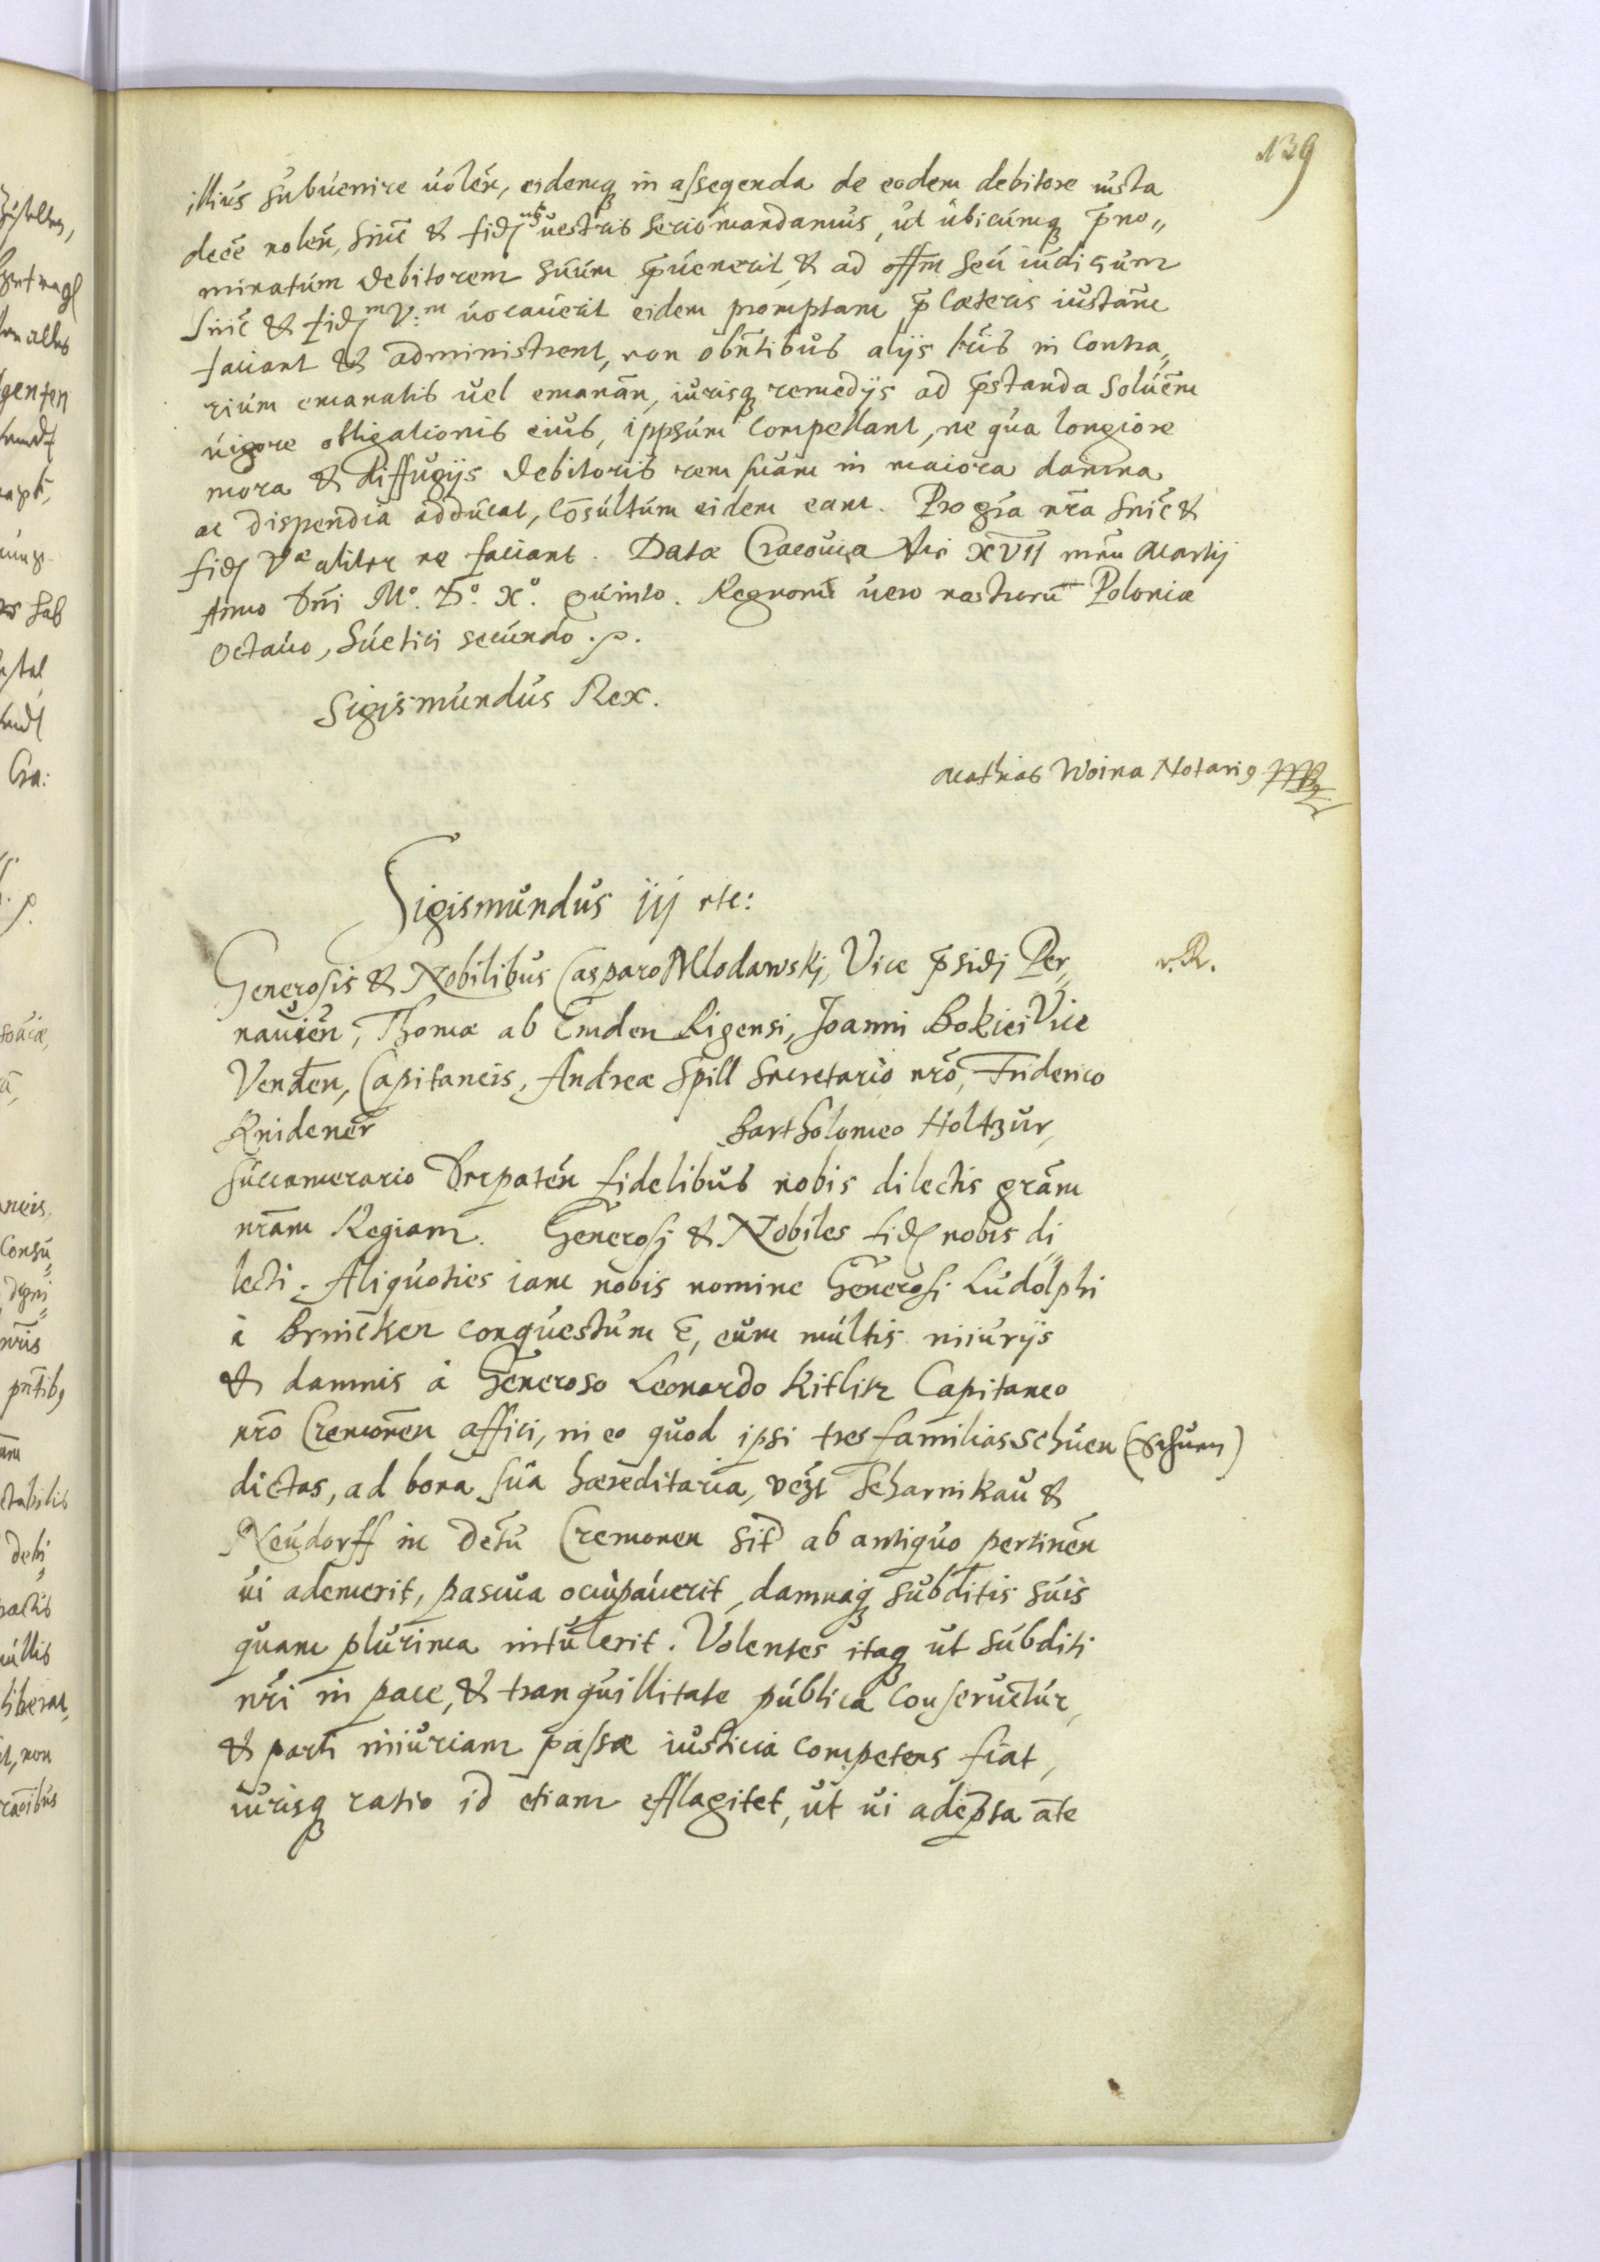 139
illius subuenire uolen̄, eidemq̢ in assequenda de eodem debitore iusta
deēe nolen̄, Sinc̄ & fid. ūrb vestris serio mandamus, ut ubicumq̢ p̄no„
minatum debitorem suum p̄uenerit, & ad offm̄ seu iudicium
Sinc̄ & fid.m V:m uocauerit eidem promptam p̄ cæteris iustam̄
faciant & administrent, non obn̄tibus alijs l̄ris in contra„
rium emanatis uel emanan̄, iurisq̢ remedijs ad p̄standa soluēm
uigore obligationis eius, ippsum compellant, ne qua longiore
mora & diffugijs debitoris rem suam in maiora damna
ac dispendia adducat, cōsultum eidem eam. Pro gr̄a nr̄a Sinc̄ &
fid. Væ aliter ne faciant. Datæ Cracouiæ die XVII men̄ Martij
Anno Dn̄i Mo. Do. Xo. quinto. Regnorū uero nostrorū Poloniæ
Octauo, Suetici secundo.
Sigismundus Rex.
Mathias Woina Notari9 mp
Sigismundus iij etc:
Generosis & Nobilibus Casparo Mlodawskj, Vice p̄sidj Per„
nauien̄, Thomæ ab Emden Rigensi, Joanni Bokiei Vice
Venden̄, Capitaneis, Andreæ Spill Secretario nr̄o, Friderico
Knidener Bartholomeo Holtzur,
Succamerario Derpaten̄ fidelibus nobis dilectis grām
nr̄am Regiam. Generosj & Nobiles fid. nobis di„
lecti. Aliquoties iam nobis nomine Generosi Ludolphi
à Brincken conquestum ē, eum multis iniurijs
& damnis à Generoso Leonardo Kitlitz Capitaneo
nr̄o Cremonen̄ affici, in eo quod ipsi tres familias schuen (Schuen)
dictas, ad bona sua hæreditaria, vēzt Scharnikau &
Neudorff in dc̄tu Cremonen sit̄ ab antiquo pertinen̄
ui ademerit, pascua occupauerit, damnaq̢ subditis suis
quam plurima intulerit. Volentes itaq̢ ut subditi
nr̄i in pace, & tranquillitate publica conseruētur,
& parti iniuriam passæ iusticia competens fiat,
iurisq̢ ratio id etiam efflagitet, ut ui adempta an̄te
r. R.